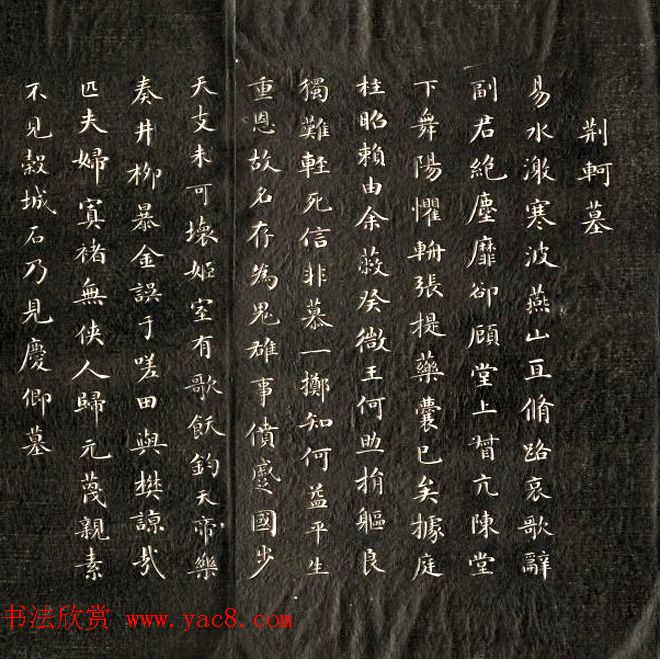 荆軻墓
易水潎寒波燕山亘脩路哀歌辭
副君絕塵靡卻顧堂上瞀亢陳堂
下舞陽懼軵張提藥囊已矣據庭
柱昭賴由余蔜癸微王何㫮捐軀良
獨難輕死信非慕一擲知何益平生
重恩故名存為鬼雄事僨蹙國步
天支未可壞姬室有歌飫鈞天帝樂
奏井柳暴金誤于嗟田與樊諒哉
匹夫婦寘褚無俠人歸元蔑親素
不見穀城石乃見慶卿墓
书法欣赏 www.yac8.com